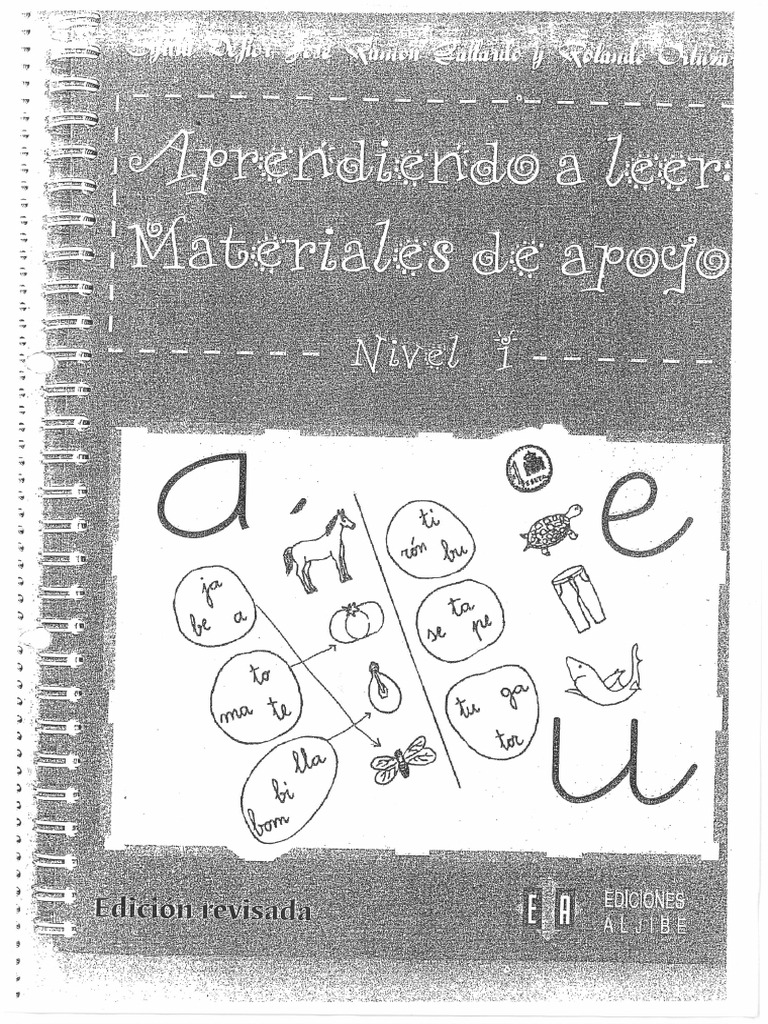 José Ramón Gallardo y Rolando
Aprendiendo a leer:
Materiales de apoyo
Nivel 1
a
e
ja
be a
to
ma te
lla
bi
bom
ti
rón bu
ta
se pe
tu ga
tor
u
Edición revisada
EA EDICIONES
ALJIBE